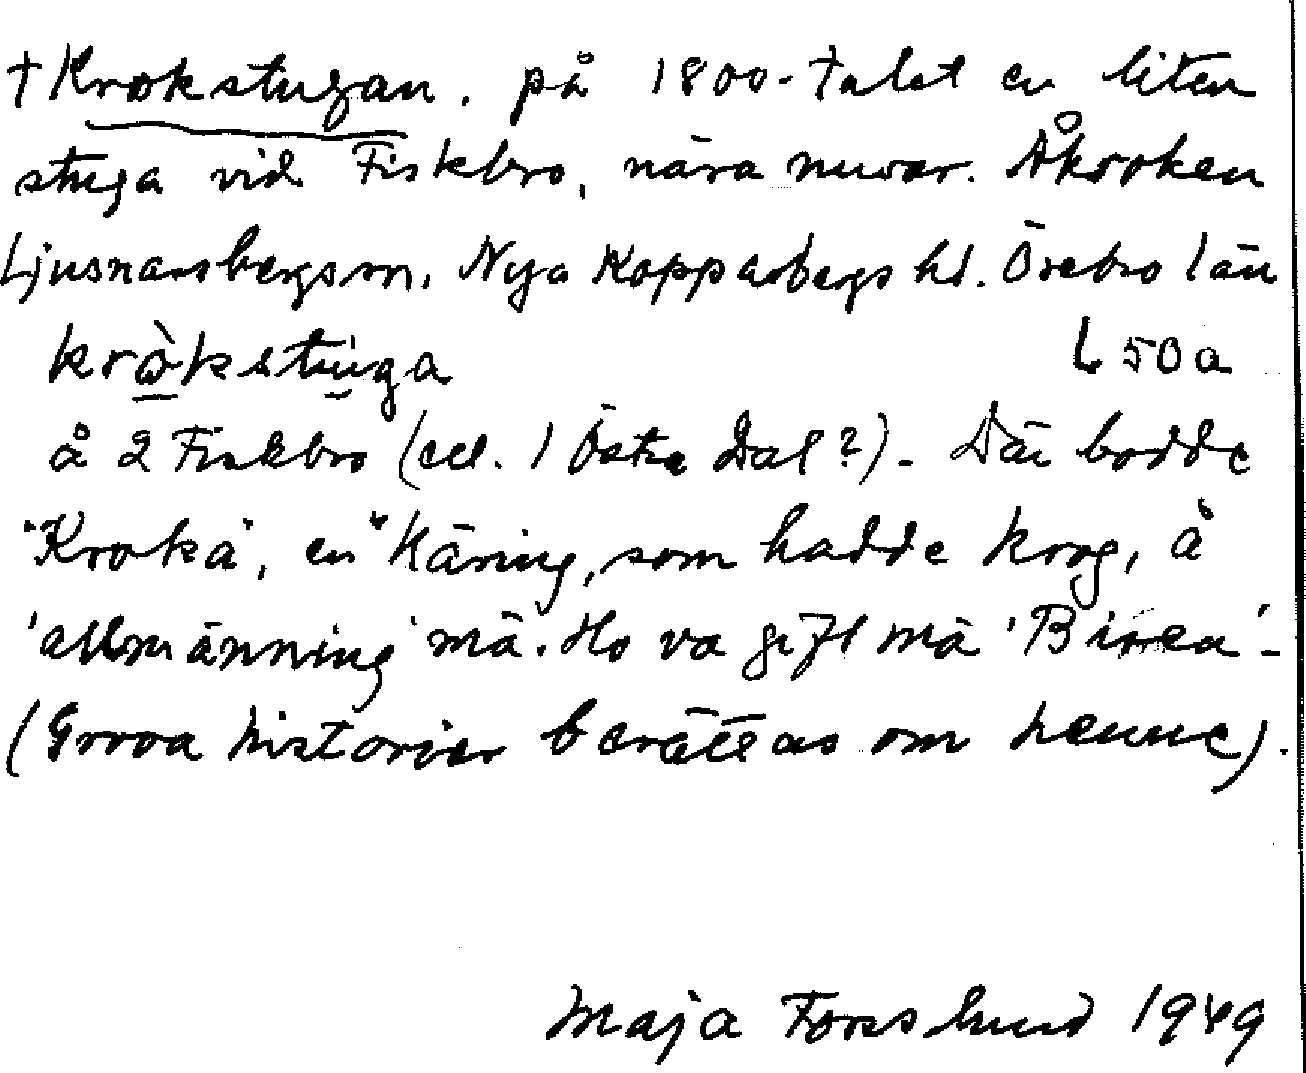 † Krokstugan. på 1800-talet en liten
stuga vid Fiskbro, nära nuvar. Åkroken
Ljusnarsbergs sn, Nya Kopparbergs hd. Örebro län
kròkstùga L 50 a
å 2 Fiskbro (el. 1 Östra Dal?). Där bodde
"Kroka", en "Käring, som hadde krog, å
'allmänning' mä. Ho va gift mä 'Birea' -
(Grova historier berättas om henne).
Maja Forsslund 1949